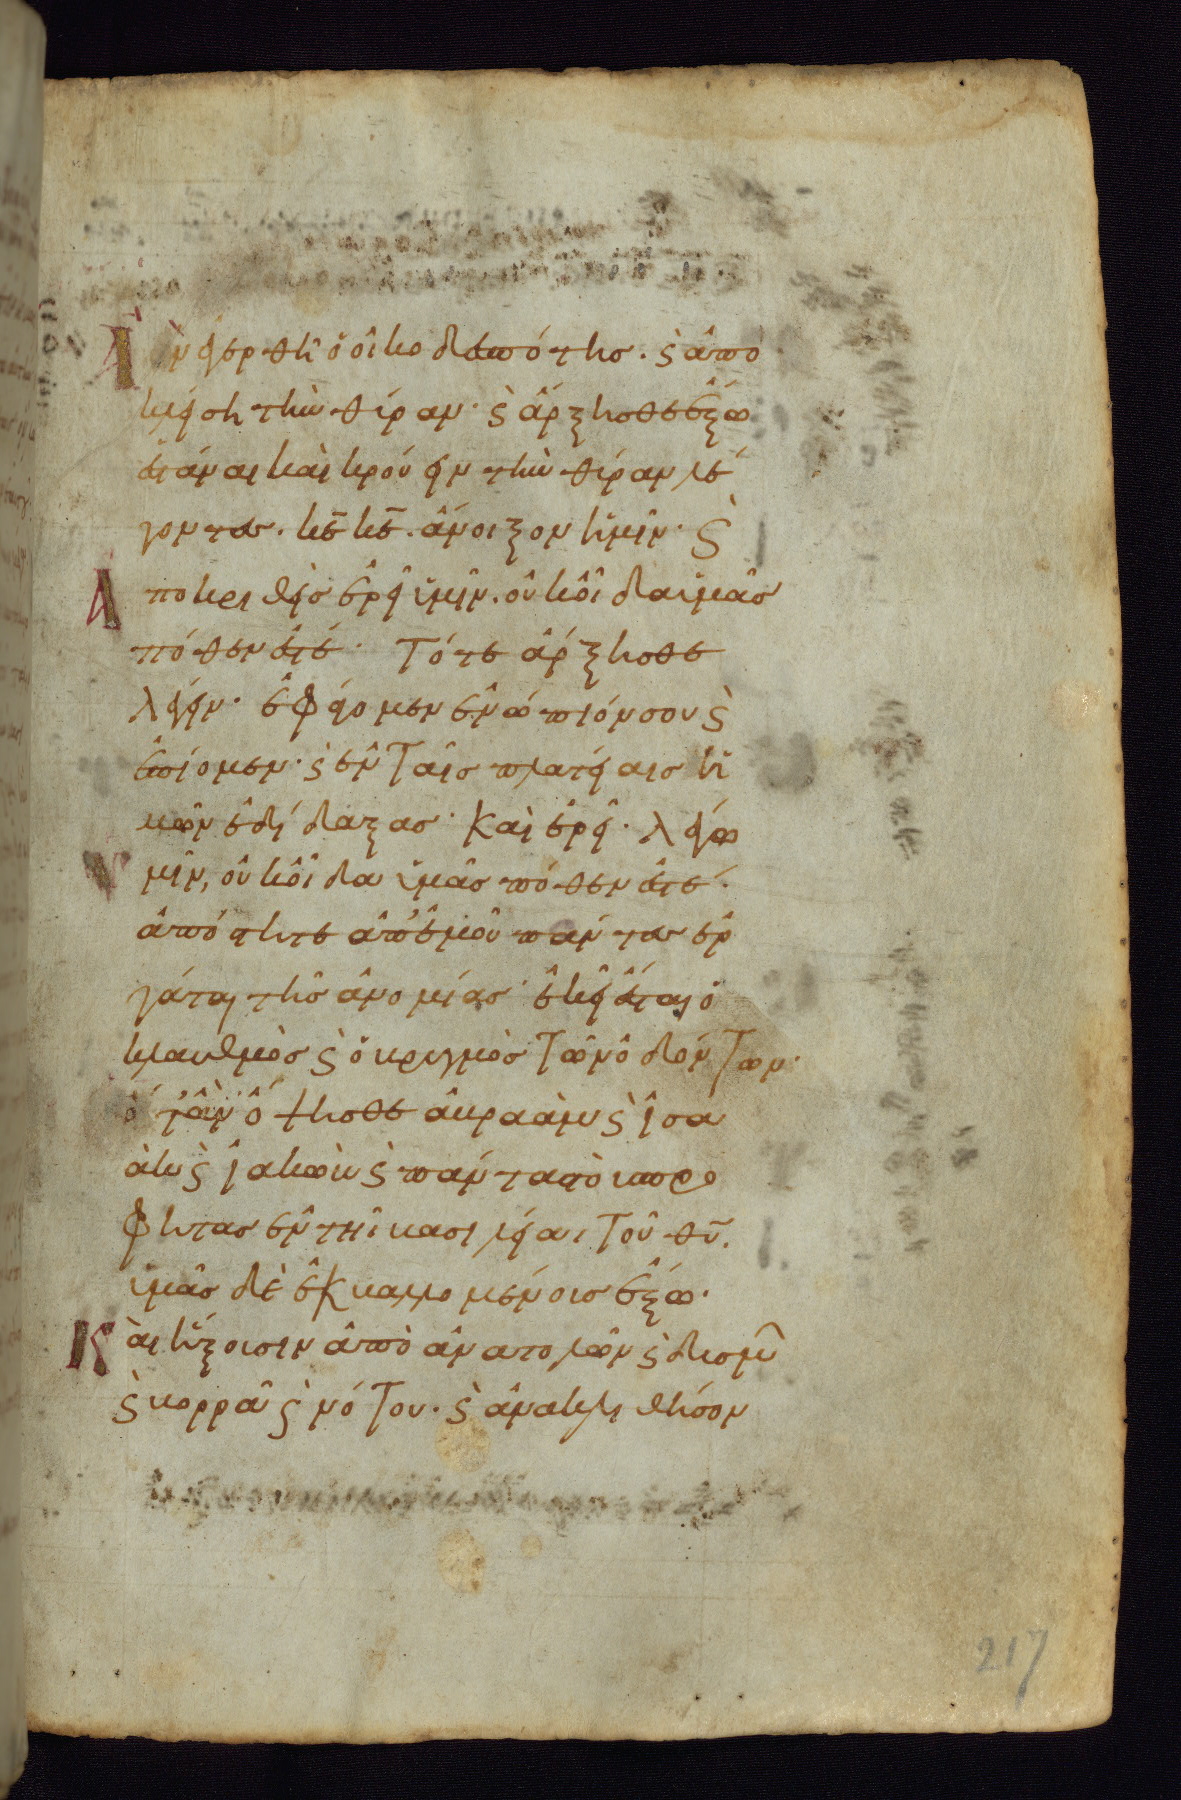 Ἀν ἐγερθῆ ὁ οἰκοδεσπότης. ϛ ἀπο
κλείσῃ τὴν θύραν· ϛ ἄρξησθε ἔξω
στάναι καὶ κρούειν τὴν θύραν λέ
γοντες. κε κε. ἄνοιξον ἡμῖν· ϛ
Ἀποκριθεὶς ἐρεῖ ὑμῖν. οὐκ οἶδα ὑμᾶς
πόθεν ἐστέ· Τότε ἄρξησθε
λέγειν· ἐφάγομεν ἐνώπιόν σου ϛ
ἐπίομεν· ϛ ἐν ταῖς πλατείαις ἡ
μῶν ἐδίδαξας· Καὶ ἐρεῖ· λέγω
ὑμῖν, οὐκ οἶδα ὑμᾶς πόθεν ἐστέ·
ἀπόστητε ἀπ' ἐμοῦ πάντες ἐρ
γάται τῆς ἀνομίας· ἐκεῖ ἔσται ὁ
κλαυθμὸς ϛ ὁ βρυγμὸς τῶν ὀδόντων·
ὅταν ὄψησθε ἀβραὰμ ϛ ἰσα
ὰκ ϛ ἰακὼβ ϛ πάντας τοὺς προ
φήτας ἐν τῆ βασιλείαι τοῦ θυ.
ὑμᾶς δὲ ἐκβαλλομένους ἔξω·
Καὶ ἥξουσιν ἀπὸ ἀνατολῶν ϛ δυσμῶν
ϛ βορρᾶ ϛ νότου. ϛ ἀνακλιθήσον
217